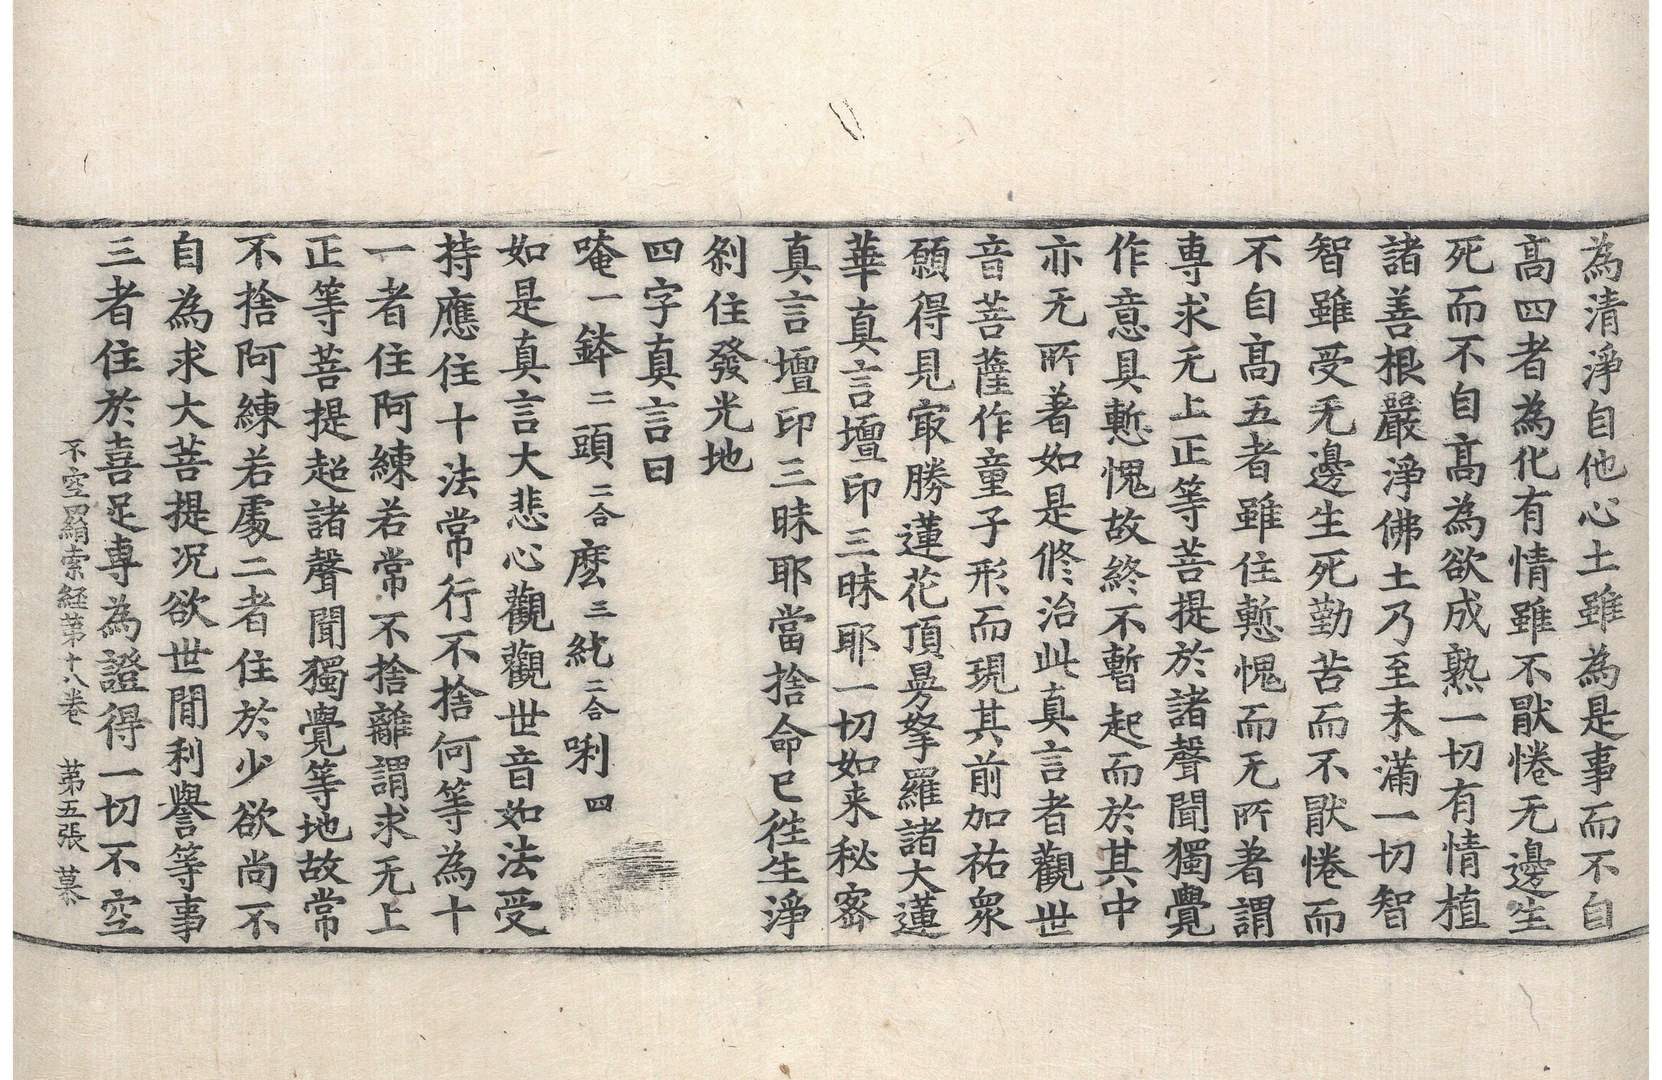 為清淨自他心土雖為是事而不自
高四者為化有情雖不猒惓无邊生
死而不自高為欲成熟一切有情植
諸善根嚴淨佛土乃至未滿一切智
智雖受无邊生死勤苦而不猒惓而
不自高五者雖住慙愧而无所著謂
專求无上正等菩提於諸聲聞獨覺
作意具慙愧故終不暫起而於其中
亦无所著如是修治此真言者觀世
音菩薩作童子形而現其前加祐衆
願得見㝡勝蓮花頂㝵拏羅諸大蓮
華真言壇印三昧耶一切如来秘密
真言壇印三昧耶當捨命已往生淨
剎住發光地
四字真言曰
唵一鉢二頭二合麼三紇二合唎四
如是真言大悲心觀觀世音如法受
持應住十法常行不捨何等為十
一者住阿練若常不捨離謂求无上
正等菩提超諸聲聞獨覺等地故常
不捨阿練若處二者住於少欲尚不
自為求大菩提况欲世閒利譽等事
三者住於喜足專為證得一切不空
不空羂索経第十八卷 第五張 慕